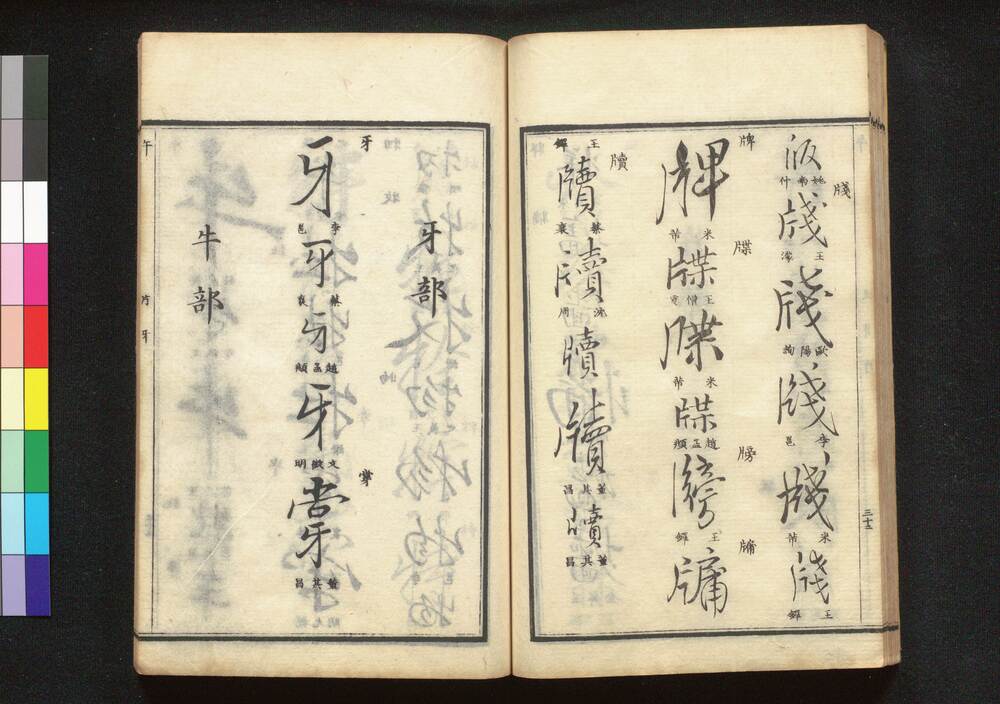 版
牋
牋 王濛
牋 歐陽詢
牋 李邕
牋 米芾
牋 王鐸
牌
牌 米芾
牒
牒 王僧虔
牒 米芾
牒 趙孟頫
牓
牓 王鐸
牖
牖
王鐸
牘
牘 蔡襄
牘 沈周
牘
牘 董其昌
牘 董其昌
牙部
牙
牙 李邕
牙 蔡襄
牙 趙孟頫
牙 文徵明
牚
牚 董其昌
牛部
片牙